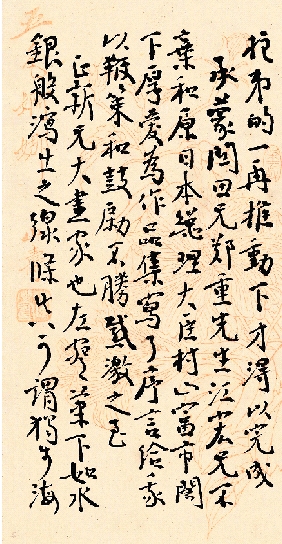 拉弟的一再推動下才得以完成
承蒙閻田兄鄭重先生江宏兄不
棄和原日本總理大臣村山富市閣
下厚愛為作品集寫了序言給我
以鞭策和鼓勵不勝感激之至
正新兄大畫家也在筆下如水
銀般瀉出之線條 可謂獨步海